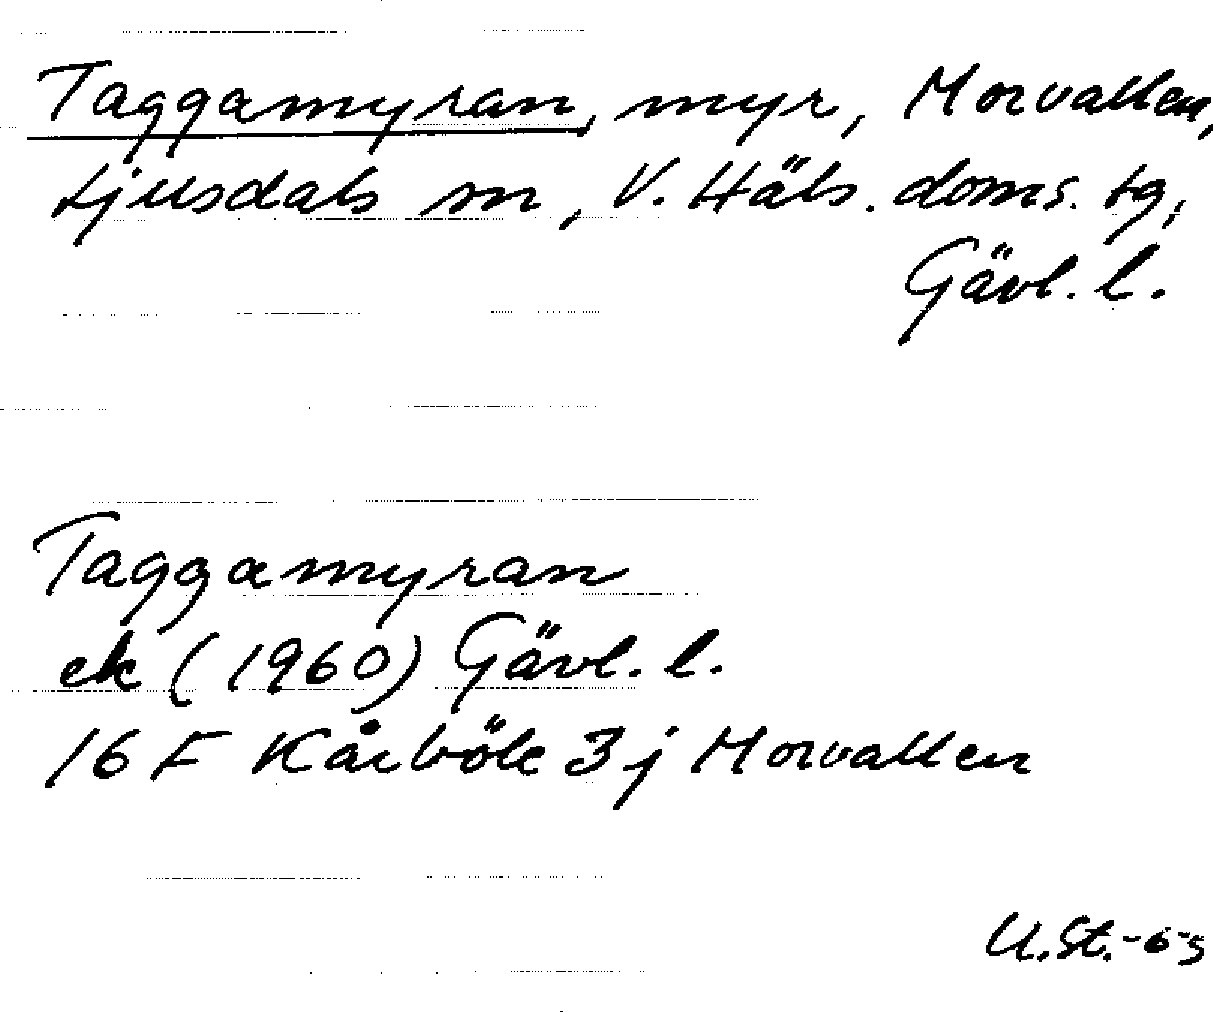 Taggamyran, myr, Morvallen,
Ljusdals sn, V. Häls. doms. tg,
Gävl. l.
Taggamyran
ek (1960) Gävl. l.
16 F Kårböle 3j Morvallen
U.St.-65